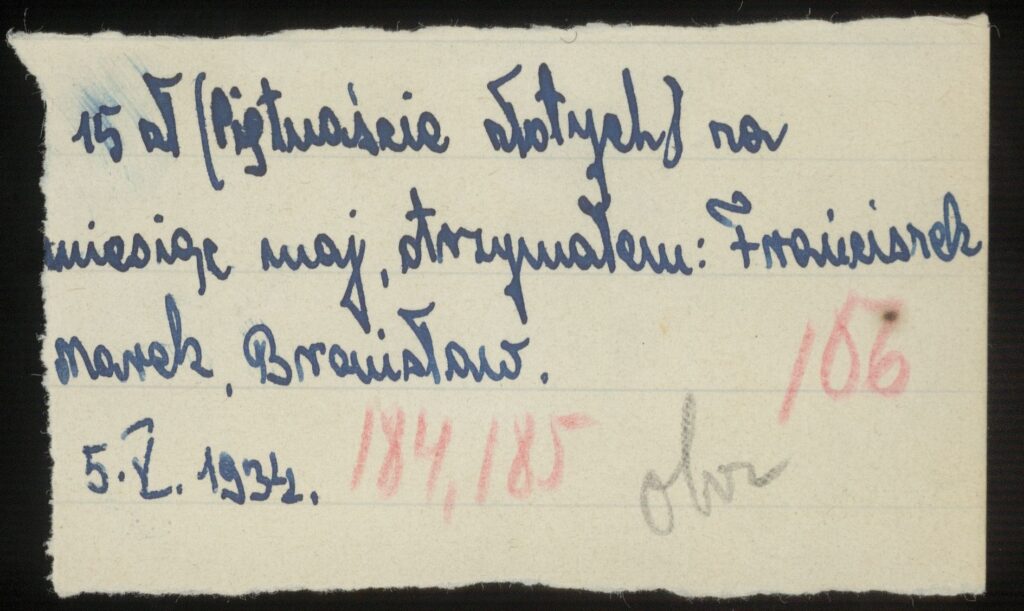 15 zł (Piętnaście złotych) za
miesiąc maj, otrzymałem: Franciszek
Marek, Bronisław.
5. V. 1934.
184, 185
106